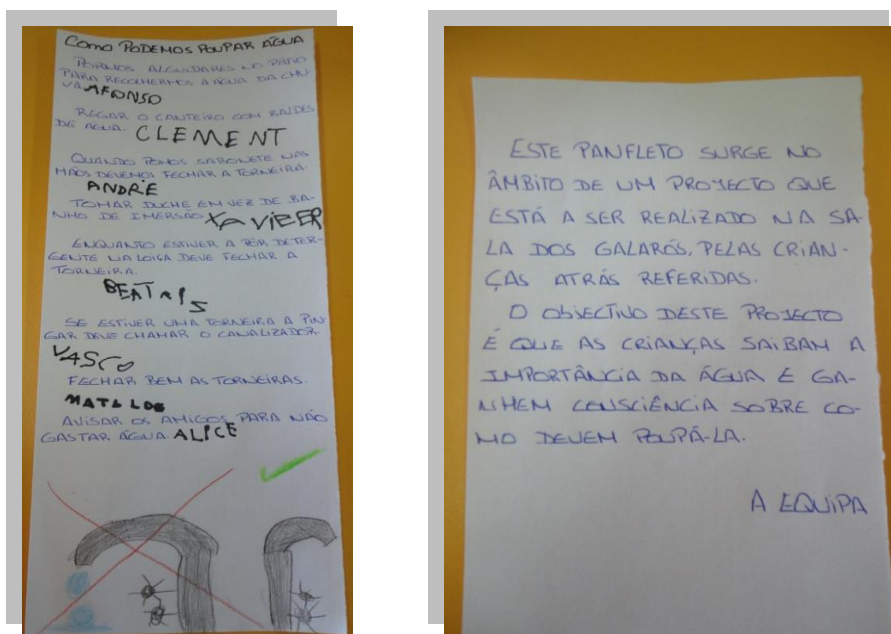 COMO PODEMOS POUPAR ÁGUA
PORMOS ALGUIDARES NO PÁTIO
PARA RECOLHERMOS A ÁGUA DA CHU-
VA AFONSO
REGAR O CANTEIRO COM BALDES
DE ÁGUA. CLEMENT
QUANDO POMOS SABONETE NAS
MÃOS DEVEMOS FECHAR A TORNEIRA.
ANDRÉ
TOMAR DUCHE EM VEZ DE BA-
NHO DE IMERSÃO XAVIER
ENQUANTO ESTIVER A PÔR DETER-
GENTE NA LOIÇA DEVE FECHAR A
TORNEIRA.
BEATRIS
SE ESTIVER UMA TORNEIRA A PIN-
GAR DEVE CHAMAR O CANALIZADOR.
VASCO
FECHAR BEM AS TORNEIRAS.
MATILDE
AVISAR OS AMIGOS PARA NÃO
GASTAR ÁGUA. ALICE
ESTE PANFLETO SURGE NO
ÂMBITO DE UM PROJECTO QUE
ESTÁ A SER REALIZADO NA SA-
LA DOS GALARÓS, PELAS CRIAN-
ÇAS ATRÁS REFERIDAS.
O OBJECTIVO DESTE PROJECTO
É QUE AS CRIANÇAS SAIBAM A
IMPORTÂNCIA DA ÁGUA E GA-
NHEM CONSCIÊNCIA SOBRE CO-
MO DEVEM POUPÁ-LA.
A EQUIPA